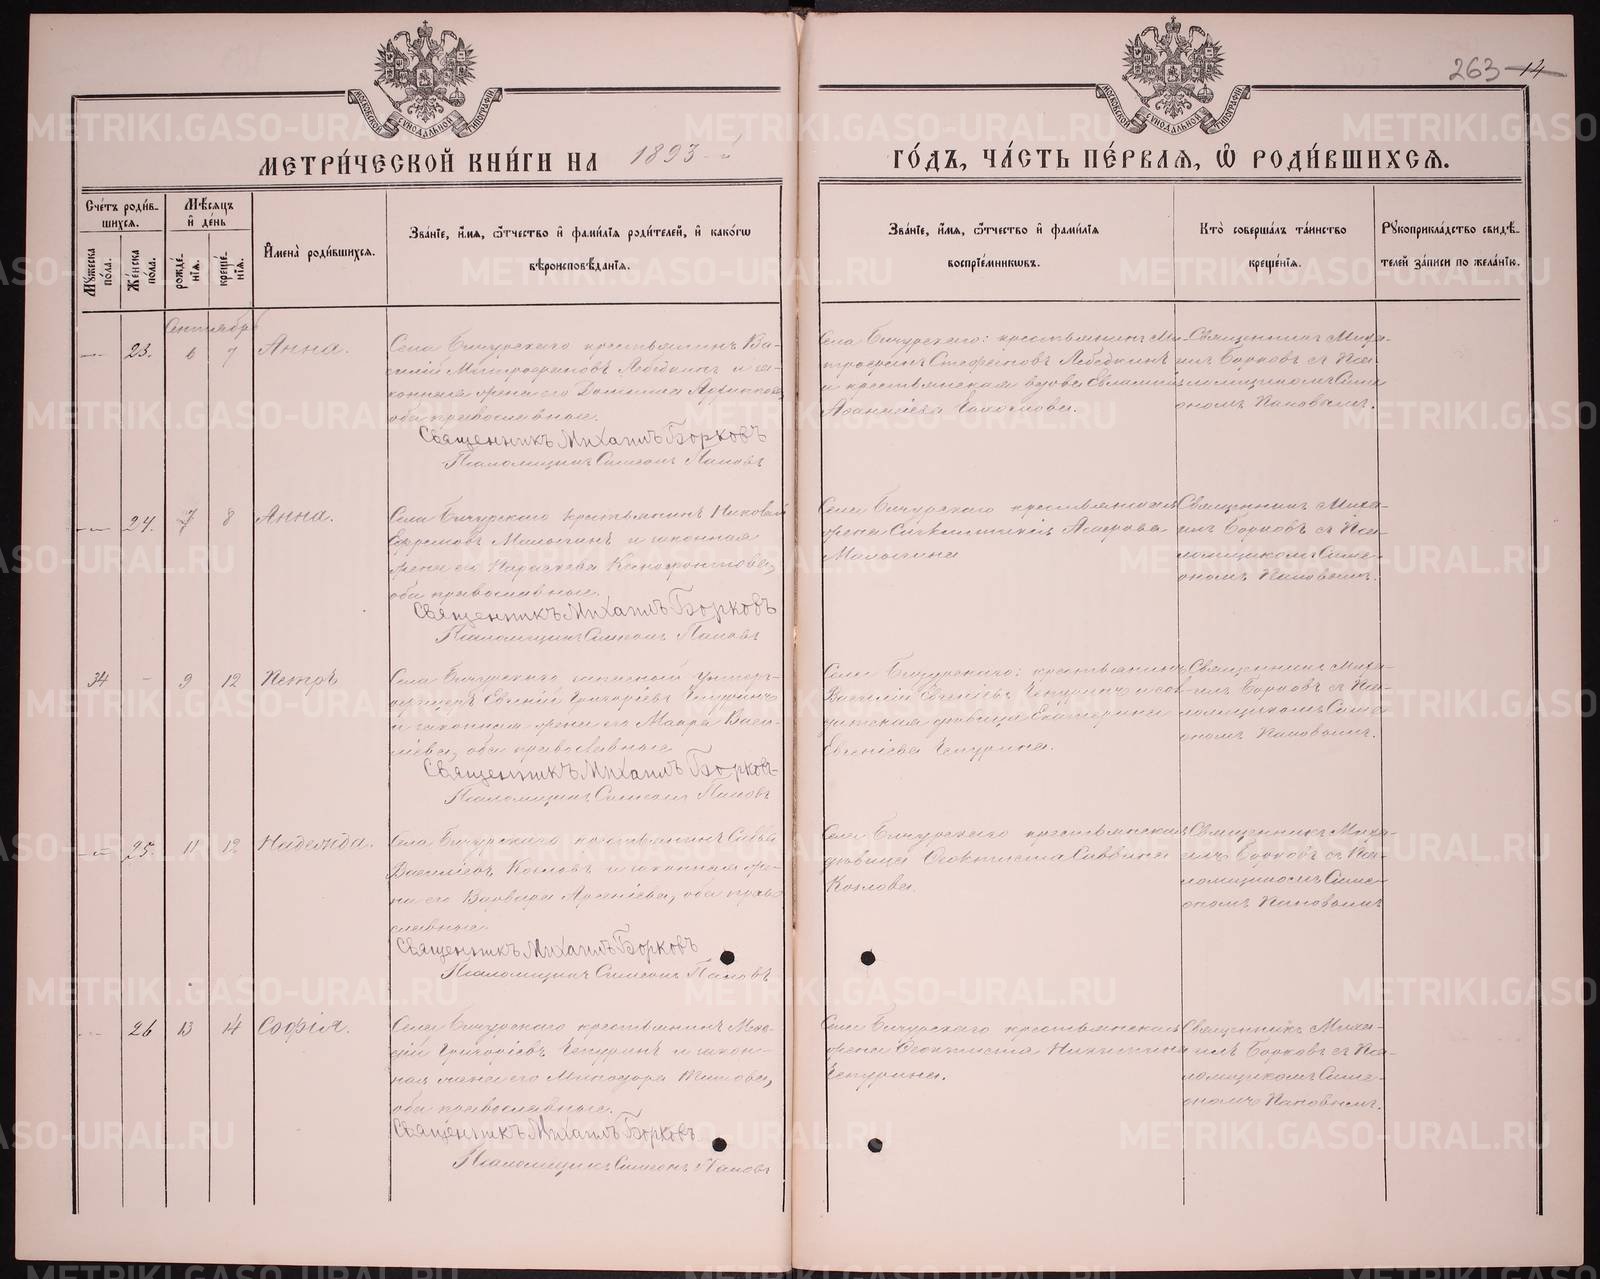 263 14
МОСКОВСКОЙ СУНОДАЛЬНОЙ ТИПОГРАФІИ
МОСКОВСКОЙ СУНОДАЛЬНОЙ ТИПОГРАФІИ
МЕТРИ́ЧЕСКОЙ КНИ́ГИ НА 1893-й
ГО́ДЪ, ЧА́СТЬ ПЕ́РВАЯ, Ѽ РОДИ́ВШИХСѦ.
Сче́тъ роди́в-
шихся.
Мѣ́сяцъ
и де́нь
Му́жеска по́ла.
Же́нска по́ла.
рожде́-
нія.
креще́-
нія.
Имена̀ роди́вшихся.
Зва́ніе, и́мя, ѻ́тчество и фами́лія роди́телей, и како́гѡ
вѣроисповѣ́данія.
Зва́ніе, и́мя, ѻ́тчество и фами́лія
воспріе́мниковъ.
Кто̀ соверша́лъ та́инство
креще́нія.
Рукоприкла́дство свидѣ́-
телей за́писи по жела́нію.
Сентябрь
23. 6 7 Анна.
Села Бичурскаго крестьянинъ Ва-
силій Митрофановъ Лебедкин и за-
конная жена его
оба православные.
Священникъ Михаилъ Борковъ
Псаломщикъ Симеонъ Паповъ
Села Бичурскаго: крестьянинъ Ми-
трофанъ Стефановъ Лебедкинъ
и крестьянская вдова
Священникъ Миха-
илъ Борковъ съ Пса-
ломщикомъ Симе-
ономъ Паповымъ.
24. 7 8 Анна.
Села Бичурскаго крестьянинъ Николай
Ефремовъ Малыгинъ и законная
жена его Параскева
оба православные.
Священникъ Михаилъ Борковъ
Псаломщикъ Симеонъ Паповъ
Села Бичурскаго крестьянская
жена
Малыгина
Священникъ Миха-
илъ Борковъ съ Пса-
ломщикомъ Симе-
ономъ Паповымъ.
34 - 9 12 Петръ
Села Бичурскаго запасной унтеръ-
офицеръ Евгеній Григорьевъ Чепуринъ
и законная жена его Мавра Васи-
ліева, оба православные
Священникъ Михаилъ Борковъ
Псаломщикъ Симеонъ Паповъ
Села Бичурскаго: крестьянинъ
Василій Евгеніевъ Чепуринъ и
девица Екатерина
Евгеніева Чепурина.
Священникъ Миха-
илъ Борковъ съ Пса-
ломщикомъ Симе-
ономъ Паповымъ.
25. 11 12 Надежда.
Села Бичурскаго крестьянинъ Савва
Василіевъ Козловъ и законная же-
на его Варвара Арсеніева, оба право-
славные.
Священникъ Михаилъ Борковъ
Псаломщикъ Симеонъ Паповъ
Села Бичурскаго крестьянская
дѣвица Ѳеоктиста Саввина
Козлова
Священникъ Миха-
илъ Борковъ съ Пса-
ломщикомъ Симе-
ономъ Паповымъ
26 13 14 Софія.
Села Бичурскаго крестьянинъ
Григоріевъ Чепуринъ и закон-
ная жена его Титова,
оба православные.
Священникъ Михаилъ Борковъ
Псаломщикъ Симеонъ Паповъ
Села Бичурскаго крестьянская
жена Ѳеоктиста Никитина
Чепурина.
Священникъ Миха-
илъ Борковъ съ Пса-
ломщикомъ Симе-
ономъ Паповымъ.
METRIKI.GASO-URAL.RU